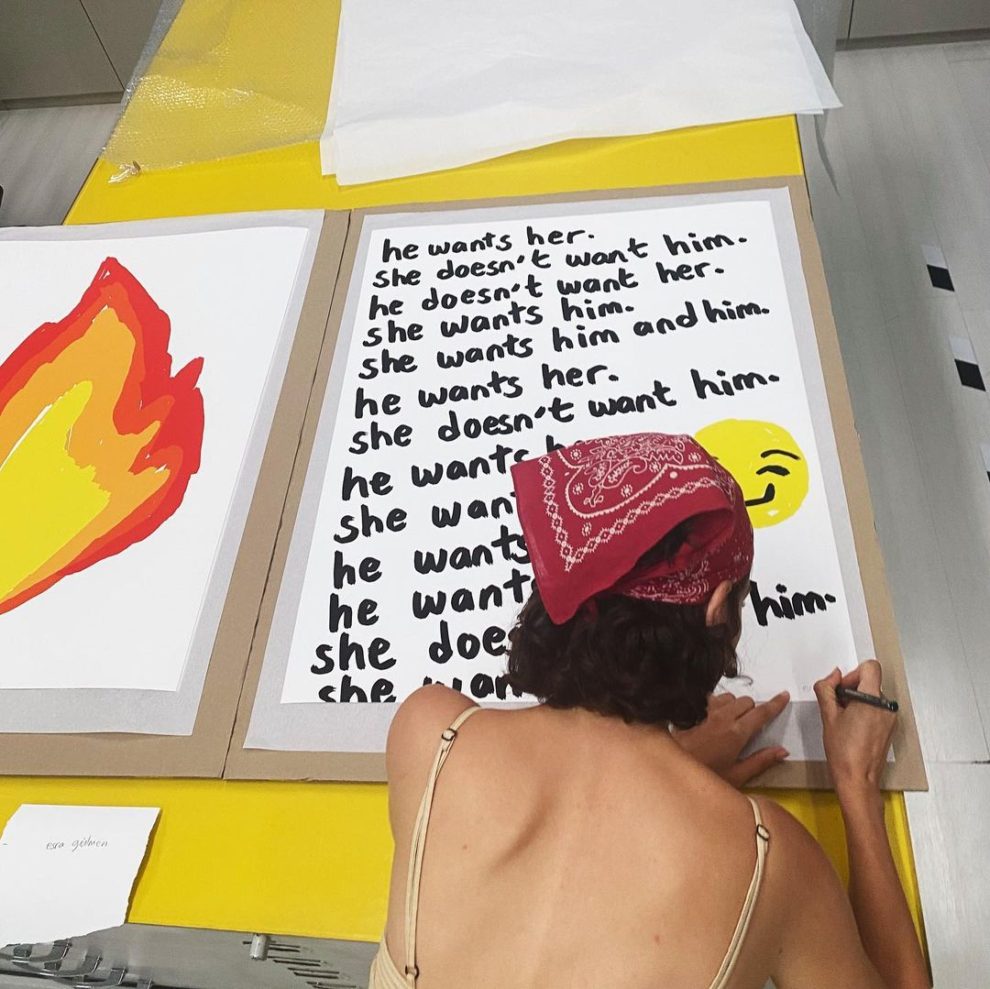 he wants her.
she doesn't want him.
he doesn't want her.
she wants him.
she wants him and him.
he wants her.
she doesn't want him.
he wants
she
he wants
he him.
she
she
esra gülmen